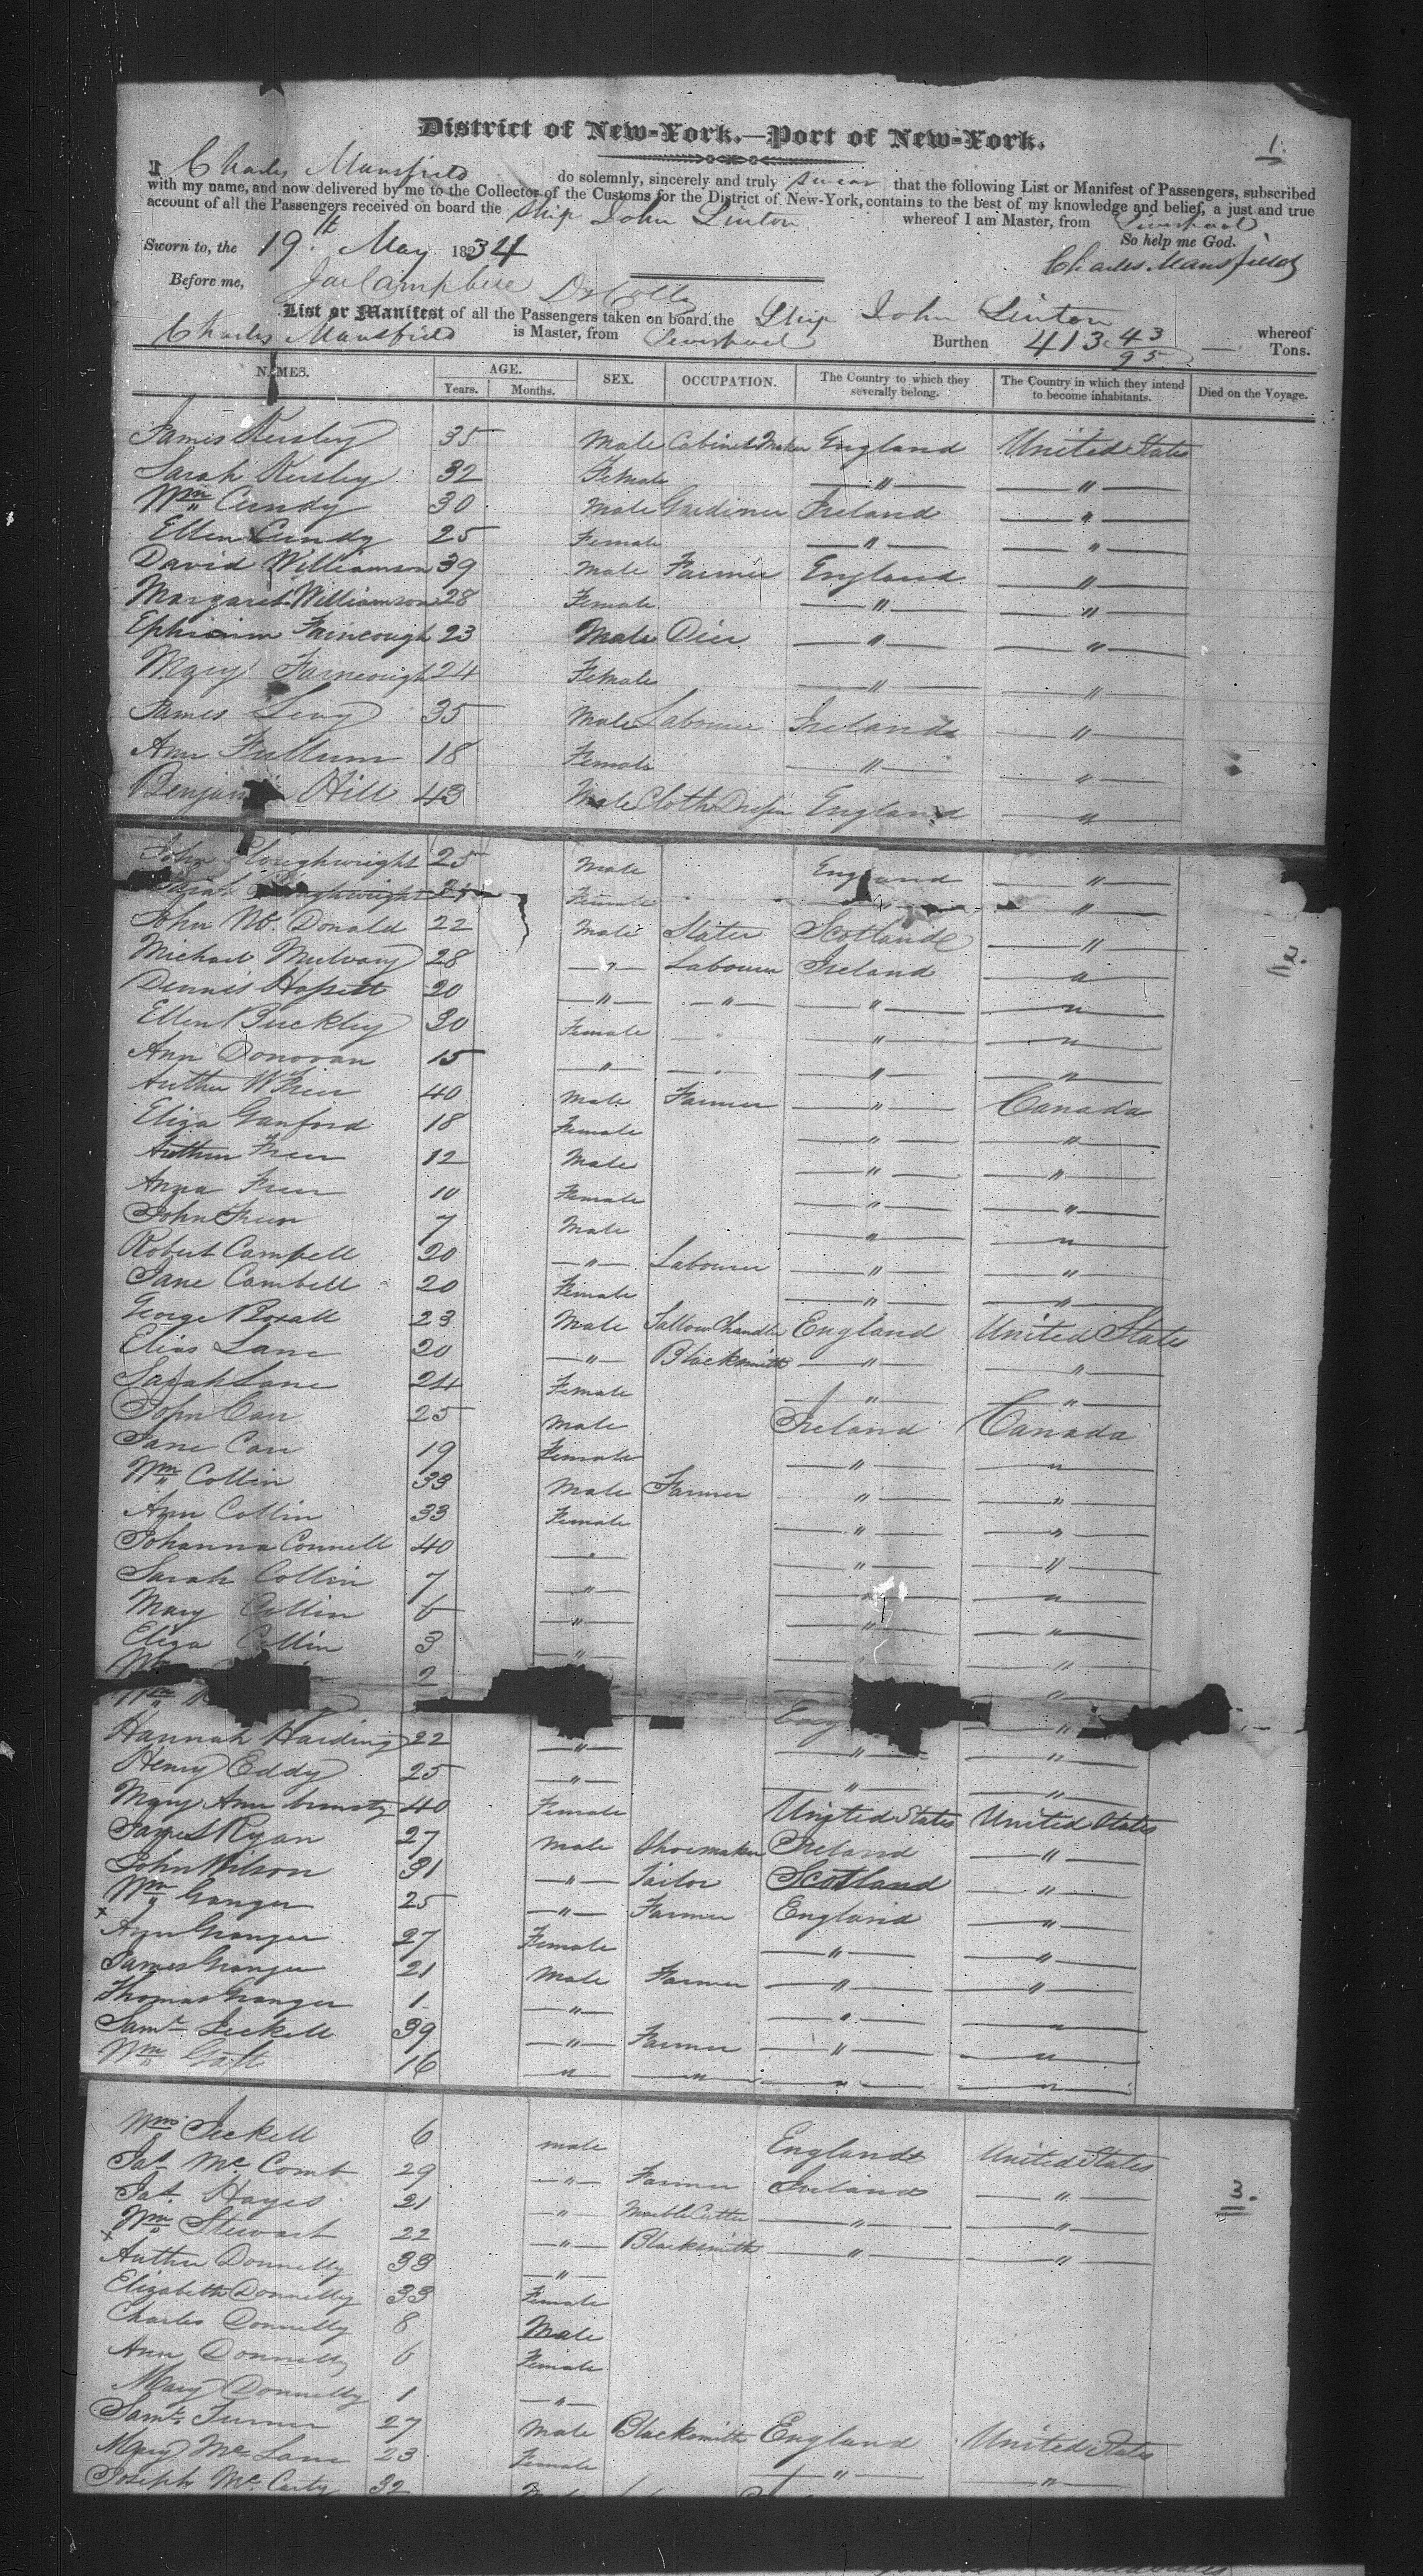 District of New-York.—Port of New-York.
1
I Charles Mansfield do solemnly, sincerely and truly swear that the following List or Manifest of Passengers, subscribed
with my name, and now delivered by me to the Collector of the Customs for the District of New-York, contains to the best of my knowledge and belief, a just and true
account of all the Passengers received on board the Ship John Linton whereof I am Master, from Liverpool
Sworn to, the 19th May 1834 So help me God.
Before me, Charles Mansfield
List or Manifest of all the Passengers taken on board the Ship John Linton whereof
Charles Mansfield is Master, from Liverpool Burthen 413 43/95 Tons.
NAMES. AGE. Years. Months. SEX. OCCUPATION. The Country to which they severally belong. The Country in which they intend to become inhabitants. Died on the Voyage.
James Kersley 35 Male Cabinet Maker England United States
Sarah Kersley 32 Female " "
Wm Cundy 30 Male Gardiner Ireland "
Ellen Cundy 25 Female " "
David Williamson 39 Male Farmer England "
Margaret Williamson 28 Female " "
Ephraim 23 Male Dier " "
Mary 24 Female " "
James Levy 35 Male Labourer Ireland "
Ann Fullum 18 Female " "
Benjamin Hill 43 Male Cloth England "
John Ploughwright 25 Male England "
Sarah Ploughwright Female "
John Mc Donald 22 Male Slater Scotland "
Michael Mulvany 28 " Labourer Ireland "
2.
Dennis Hassett 20 " " " "
Ellen Buckley 30 Female " " "
Ann Donovan 15 " " " "
Arthur W Freer 40 Male Farmer " Canada
Eliza Ganford 18 Female " "
Arthur Freer 12 Male " "
Anna Freer 10 Female " "
John Freer 7 Male " "
Robert Campell 20 " Labourer " "
Jane Cambell 20 Female " "
George Boxall 23 Male Tallow Chandler England United States
Elias Lane 20 " Blacksmith " "
Sarah Lane 24 Female " "
John Carr 25 Male Ireland Canada
Jane Carr 19 Female " "
Wm Collin 33 Male Farmer " "
Ann Collin 33 Female " "
Johanna Connell 40 " " "
Sarah Collin 7 " " "
Mary Collin 6 " " "
Eliza Collin 3 " "
Wm 2 "
Wm Eng "
Hannah Harding 22 " " "
Henry Eddy 25 " " "
Mary Ann 40 Female United States United States
James Ryan 27 Male Shoemaker Ireland "
John Wilson 31 " Tailor Scotland "
Wm Granger 25 " Farmer England "
x Ann Granger 27 Female " "
James Granger 21 Male Farmer " "
Thomas Granger 1 " " "
Saml Jeckell 39 " Farmer " "
Wm Galt 16 " " " "
Wm Jeckell 6 male England United States
Jas Mc Comb 29 " Farmer Ireland "
3.
Jas. Hayes 21 " Marble Cutter " "
Wm Stewart 22 " Blacksmith " "
x Arthur Donnelly 33 "
Elizabeth Donnelly 33 Female
Charles Donnelly 8 Male
Ann Donnelly 6 Female
Mary Donnelly 1 "
Saml. Turner 27 Male Blacksmith England United States
Mary Mc Lane 23 Female " "
Joseph Mc Carty 32